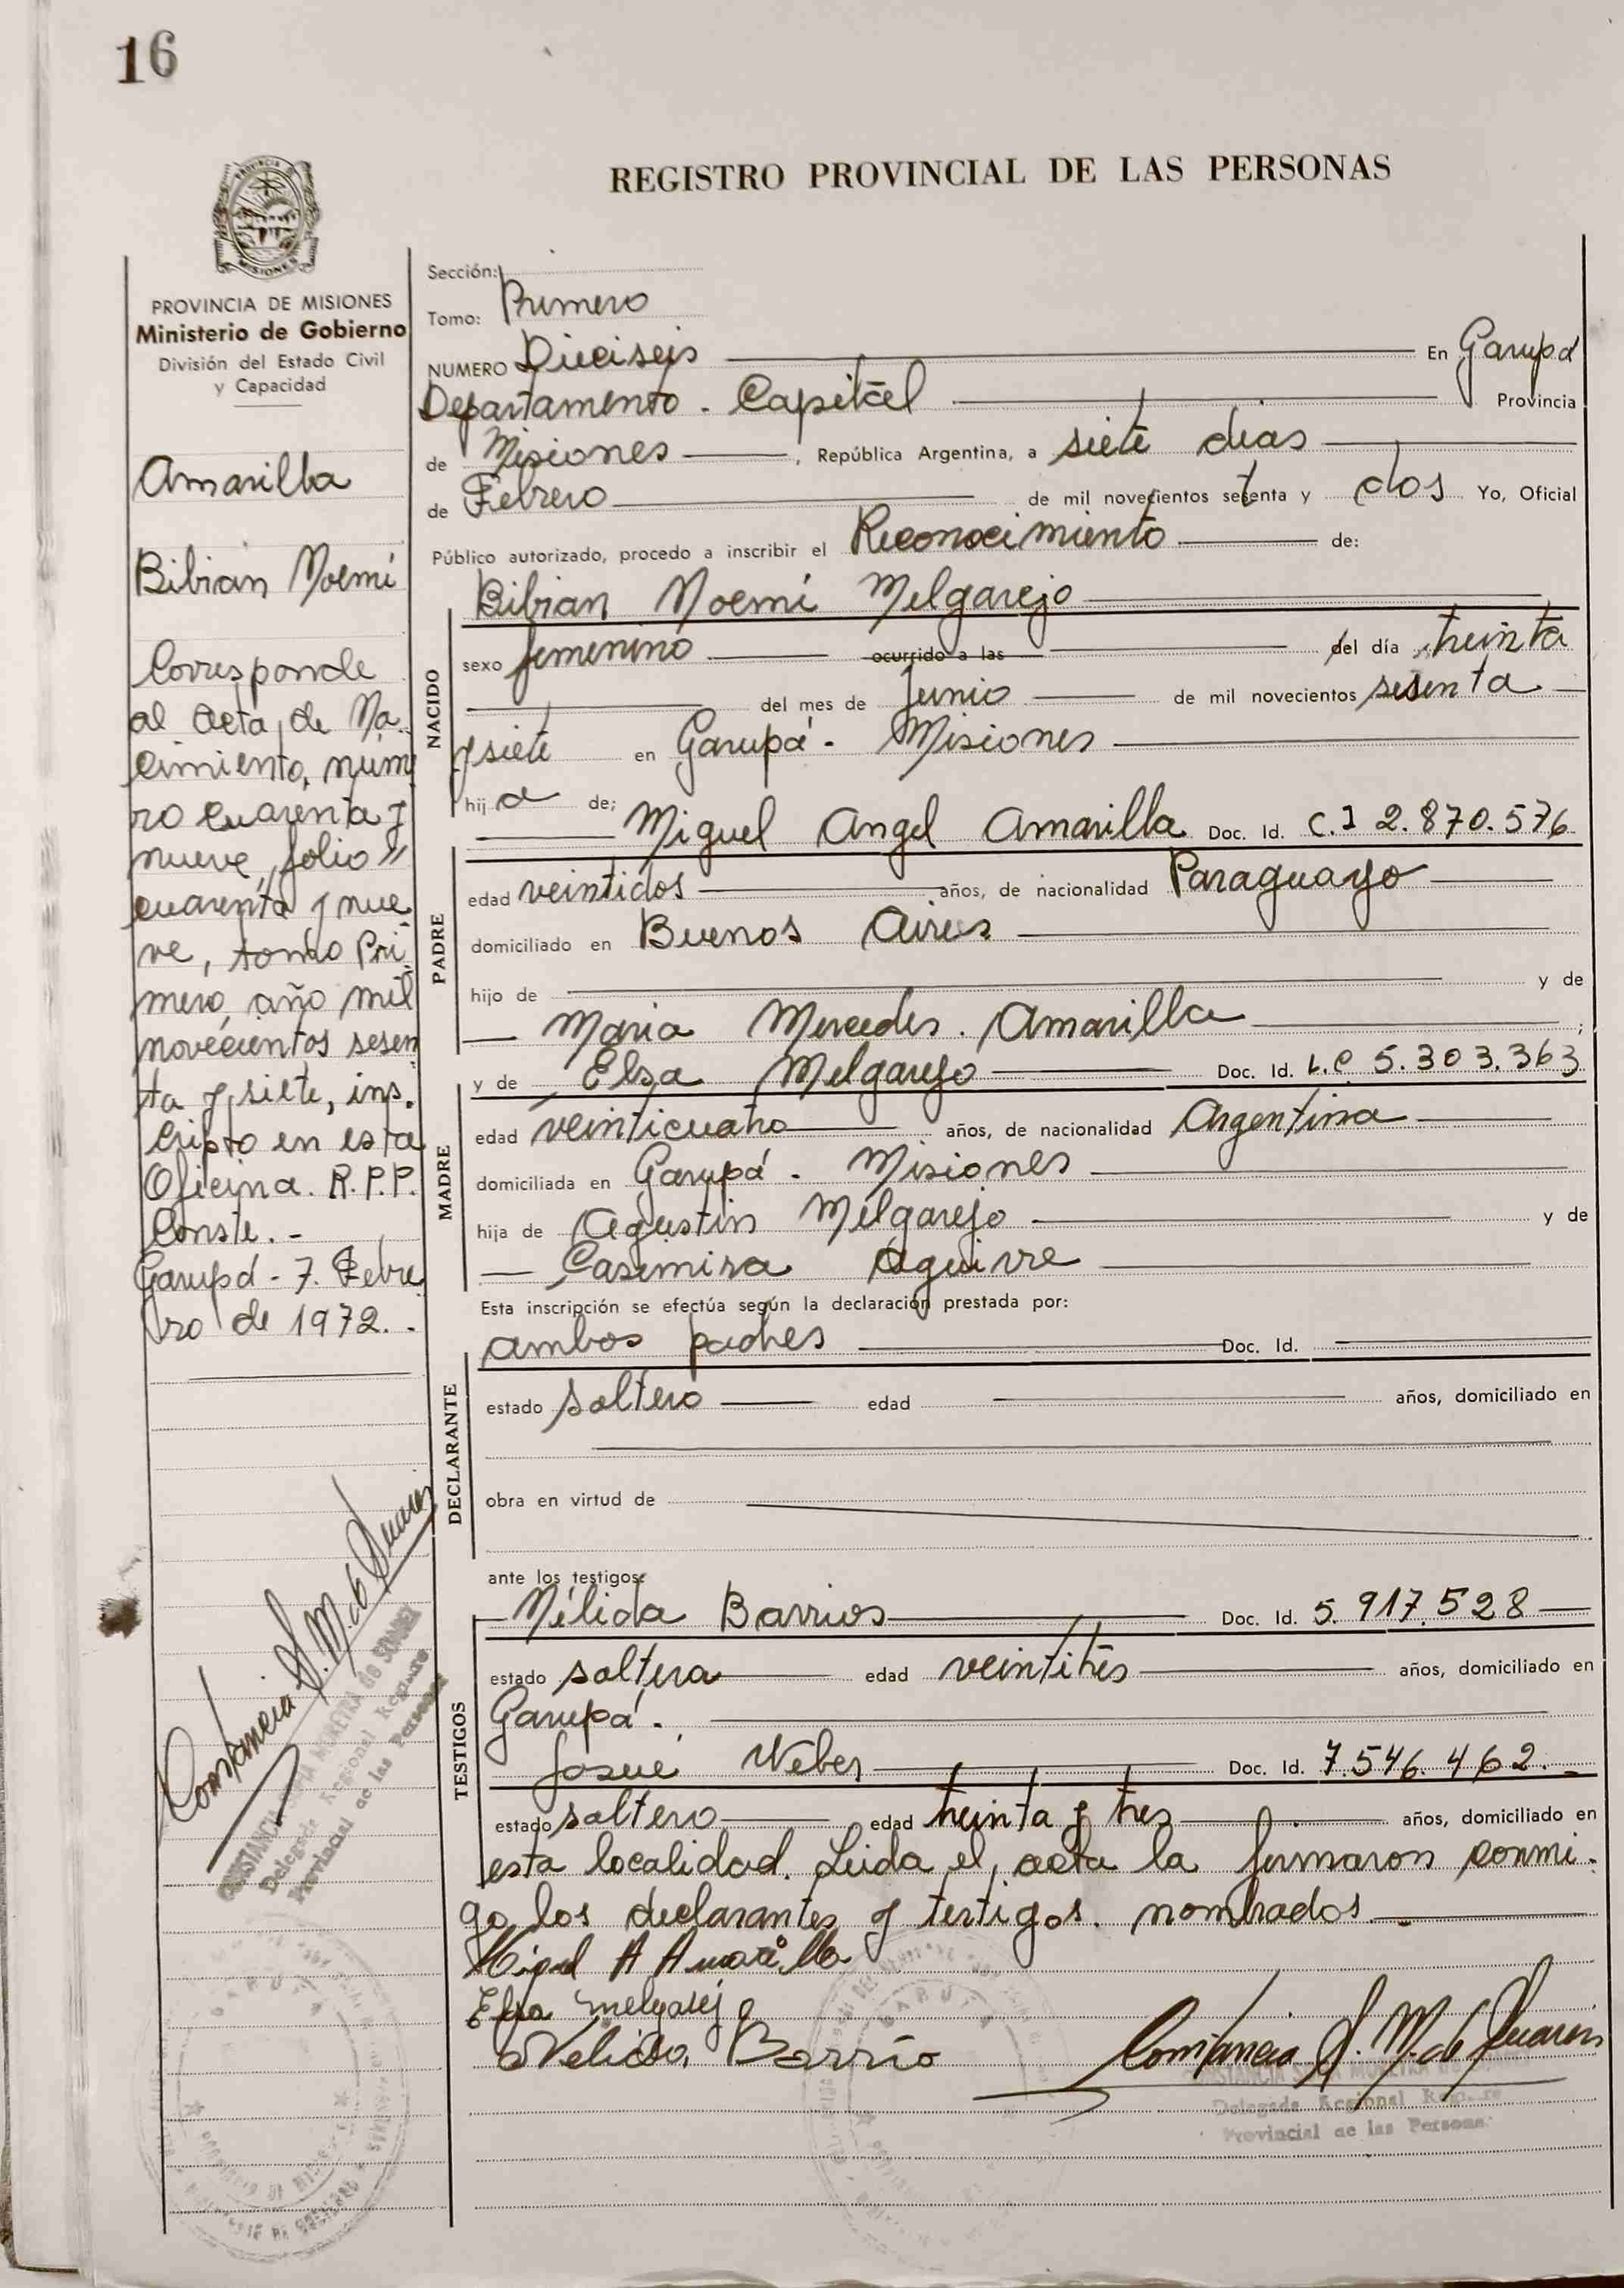 16
REGISTRO PROVINCIAL DE LAS PERSONAS
PROVINCIA DE MISIONES
Ministerio de Gobierno
División del Estado Civil
y Capacidad
Amarilla
Bibian Noemí
Corresponde
al acta de Na-
cimiento, núme
ro cuarenta y
nueve, folio "
cuarenta y nue
ve, tomo Pri-
mero, año mil
novecientos sesen
ta y siete, ins-
cripto en esta
Oficina. R.P.P.
Conste. -
Garupá - 7. Febre
ro de 1972. -
Constancia S. M. de Suarez
CONSTANCIA MOREYRA de SUAREZ
Delegada Regional Registro
Provincial de las Personas
Sección:
Tomo: Primero
NUMERO Dieciseis En Garupá
Departamento - Capital Provincia
de Misiones , República Argentina, a siete dias
de Febrero de mil novecientos setenta y dos Yo, Oficial
Público autorizado, procedo a inscribir el Reconocimiento de:
Bibian Noemí Melgarejo
NACIDO
sexo femenino ocurrido a las del día treinta
del mes de Junio de mil novecientos sesenta
y siete en Garupá - Misiones
hij a de;
Miguel Angel Amarilla Doc. Id. C.I 2.870.576
PADRE
edad veintidos años, de nacionalidad Paraguayo
domiciliado en Buenos Aires
hijo de y de
Maria Mercedes. Amarilla ;
y de Elsa Melgarejo Doc. Id. L.C 5.303.363
MADRE
edad veinticuatro años, de nacionalidad Argentina
domiciliada en Garupá - Misiones
hija de Agustin Melgarejo y de
Casimira Aguirre
Esta inscripción se efectúa según la declaración prestada por:
ambos padres Doc. Id.
DECLARANTE
estado soltero edad años, domiciliado en
obra en virtud de
ante los testigos:
Nélida Barrios Doc. Id. 5.917.528
TESTIGOS
estado soltera edad veintitrés años, domiciliado en
Garupá.
Josué Weber Doc. Id. 7.546.462.-
estado soltero edad treinta y tres años, domiciliado en
esta localidad. Leida el acta la firmaron conmi-
go los declarantes y testigos nombrados.-
Miguel A Amarilla
Elsa melgarejo
Nelida Barrio
Constancia S. M. de Suarez
CONSTANCIA MOREYRA
Delegada Regional Registro
Provincial de las Personas